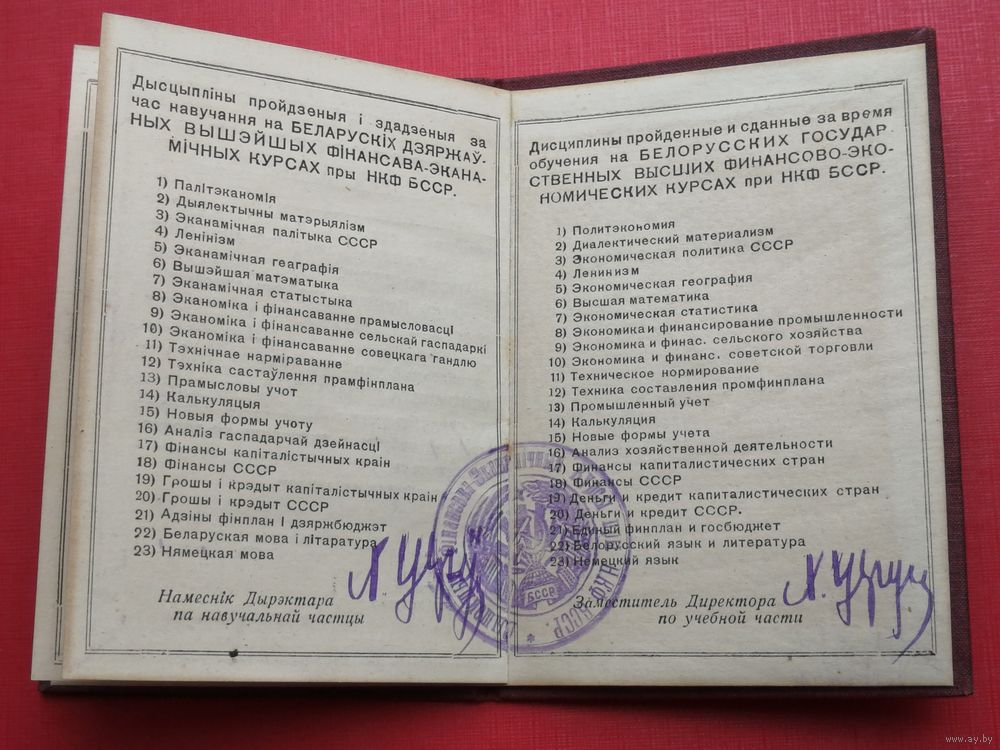 Дысцыпліны пройдзеныя і здадзеныя за
час навучання на БЕЛАРУСКІХ ДЗЯРЖАЎ-
НЫХ ВЫШЭЙШЫХ ФІНАНСАВА-ЭКАНА-
МІЧНЫХ КУРСАХ пры НКФ БССР.
1) Палітэканомія
2) Дыялектычны матэрыялізм
3) Эканамічная палітыка СССР
4) Ленінізм
5) Эканамічная геаграфія
6) Вышэйшая матэматыка
7) Эканамічная статыстыка
8) Эканоміка і фінансаванне прамысловасці
9) Эканоміка і фінансаванне сельскай гаспадаркі
10) Эканоміка і фінансаванне совецкага гандлю
11) Тэхнічнае нарміраванне
12) Тэхніка састаўлення прамфінплана
13) Прамысловы учот
14) Калькуляцыя
15) Новыя формы учоту
16) Аналіз гаспадарчай дзейнасці
17) Фінансы капіталістычных краін
18) Фінансы СССР
19) Грошы і крэдыт капіталістычных краін
20) Грошы і крэдыт СССР
21) Адзіны фінплан і дзяржбюджэт
22) Беларуская мова і літаратура
23) Нямецкая мова
Намеснік Дырэктара
па навучальнай частцы
Дисциплины пройденные и сданные за время
обучения на БЕЛОРУССКИХ ГОСУДАР
СТВЕННЫХ ВЫСШИХ ФИНАНСОВО-ЭКО-
НОМИЧЕСКИХ КУРСАХ при НКФ БССР.
1) Политэкономия
2) Диалектический материализм
3) Экономическая политика СССР
4) Ленинизм
5) Экономическая география
6) Высшая математика
7) Экономическая статистика
8) Экономика и финансирование промышленности
9) Экономика и финас. сельского хозяйства
10) Экономика и финанс. советской торговли
11) Техническое нормирование
12) Техника составления промфинплана
13) Промышленный учет
14) Калькуляция
15) Новые формы учета
16) Анализ хозяйственной деятельности
17) Финансы капиталистических стран
18) Финансы СССР
19) Деньги и кредит капиталистических стран
20) Деньги и кредит СССР.
21) Единый финплан и госбюджет
22) Белорусский язык и литература
23) Немецкий язык
Заместитель Директора
по учебной части
БССР
www.ay.by